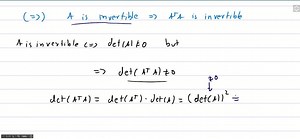 (⇐) A is invertible ⇒ AᵀA is invertible
A is invertible ⇔ det(A) ≠ 0 but
⇒ det(AᵀA) ≠ 0
≠0
det(AᵀA) = det(Aᵀ)·det(A) = (det(A))² =